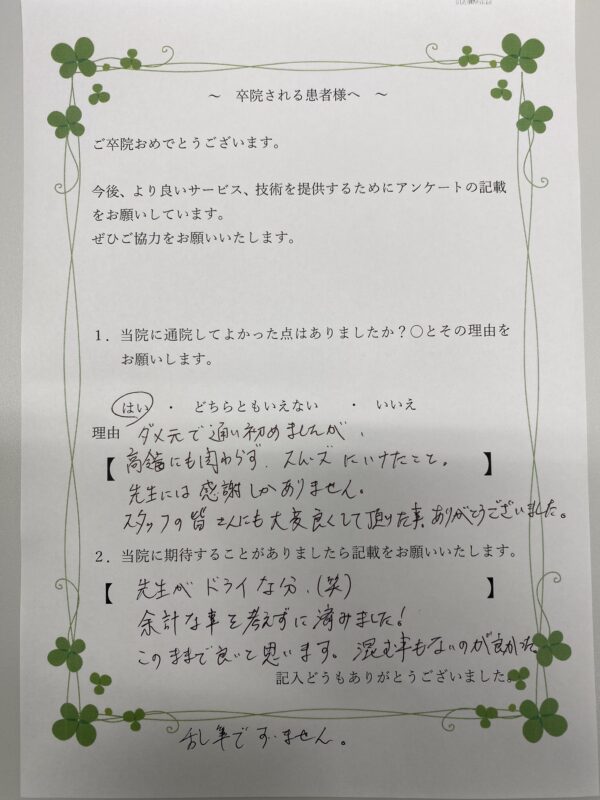 ～ 卒院される患者様へ ～
ご卒院おめでとうございます。
今後、より良いサービス、技術を提供するためにアンケートの記載
をお願いしています。
ぜひご協力をお願いいたします。
１．当院に通院してよかった点はありましたか？〇とその理由を
お願いします。
はい ・ どちらともいえない ・ いいえ
理由 ダメ元で通い初めましたが、
【高齢にも関わらず、スムーズにいけたこと。】
先生には感謝しかありません。
スタッフの皆さんにも大変良くして頂けた事、ありがとうございました。
２．当院に期待することがありましたら記載をお願いいたします。
【先生がドライな分、(笑)】
余計な事を考えずに済みました！
このままで良いと思います。混む事もないのが良かった
記入どうもありがとうございました。
乱筆ですいません。